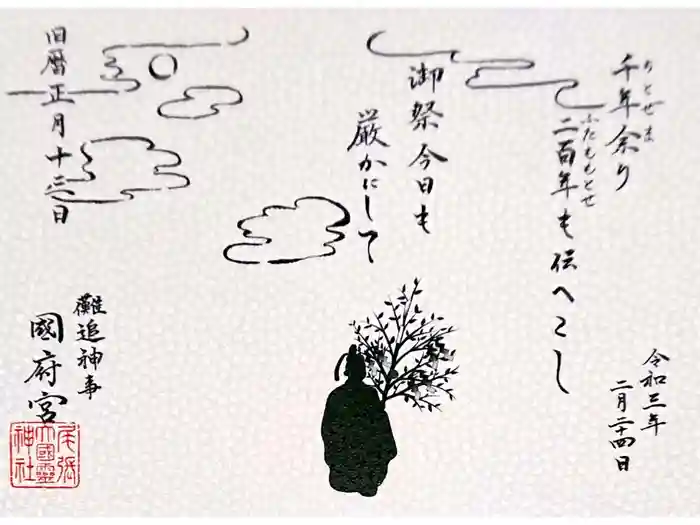 千年余り
ちとせあま
二百年も伝へこし
ふたももとせ
御祭今日も
厳かにして
旧暦正月十三日
令和三年
二月二十四日
難追神事
國府宮
尾張
大國霊
神社